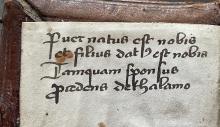 Puer natus est nobis
et filius datꝰ est nobis
Tamquam sponsus
Procedens de thalamo